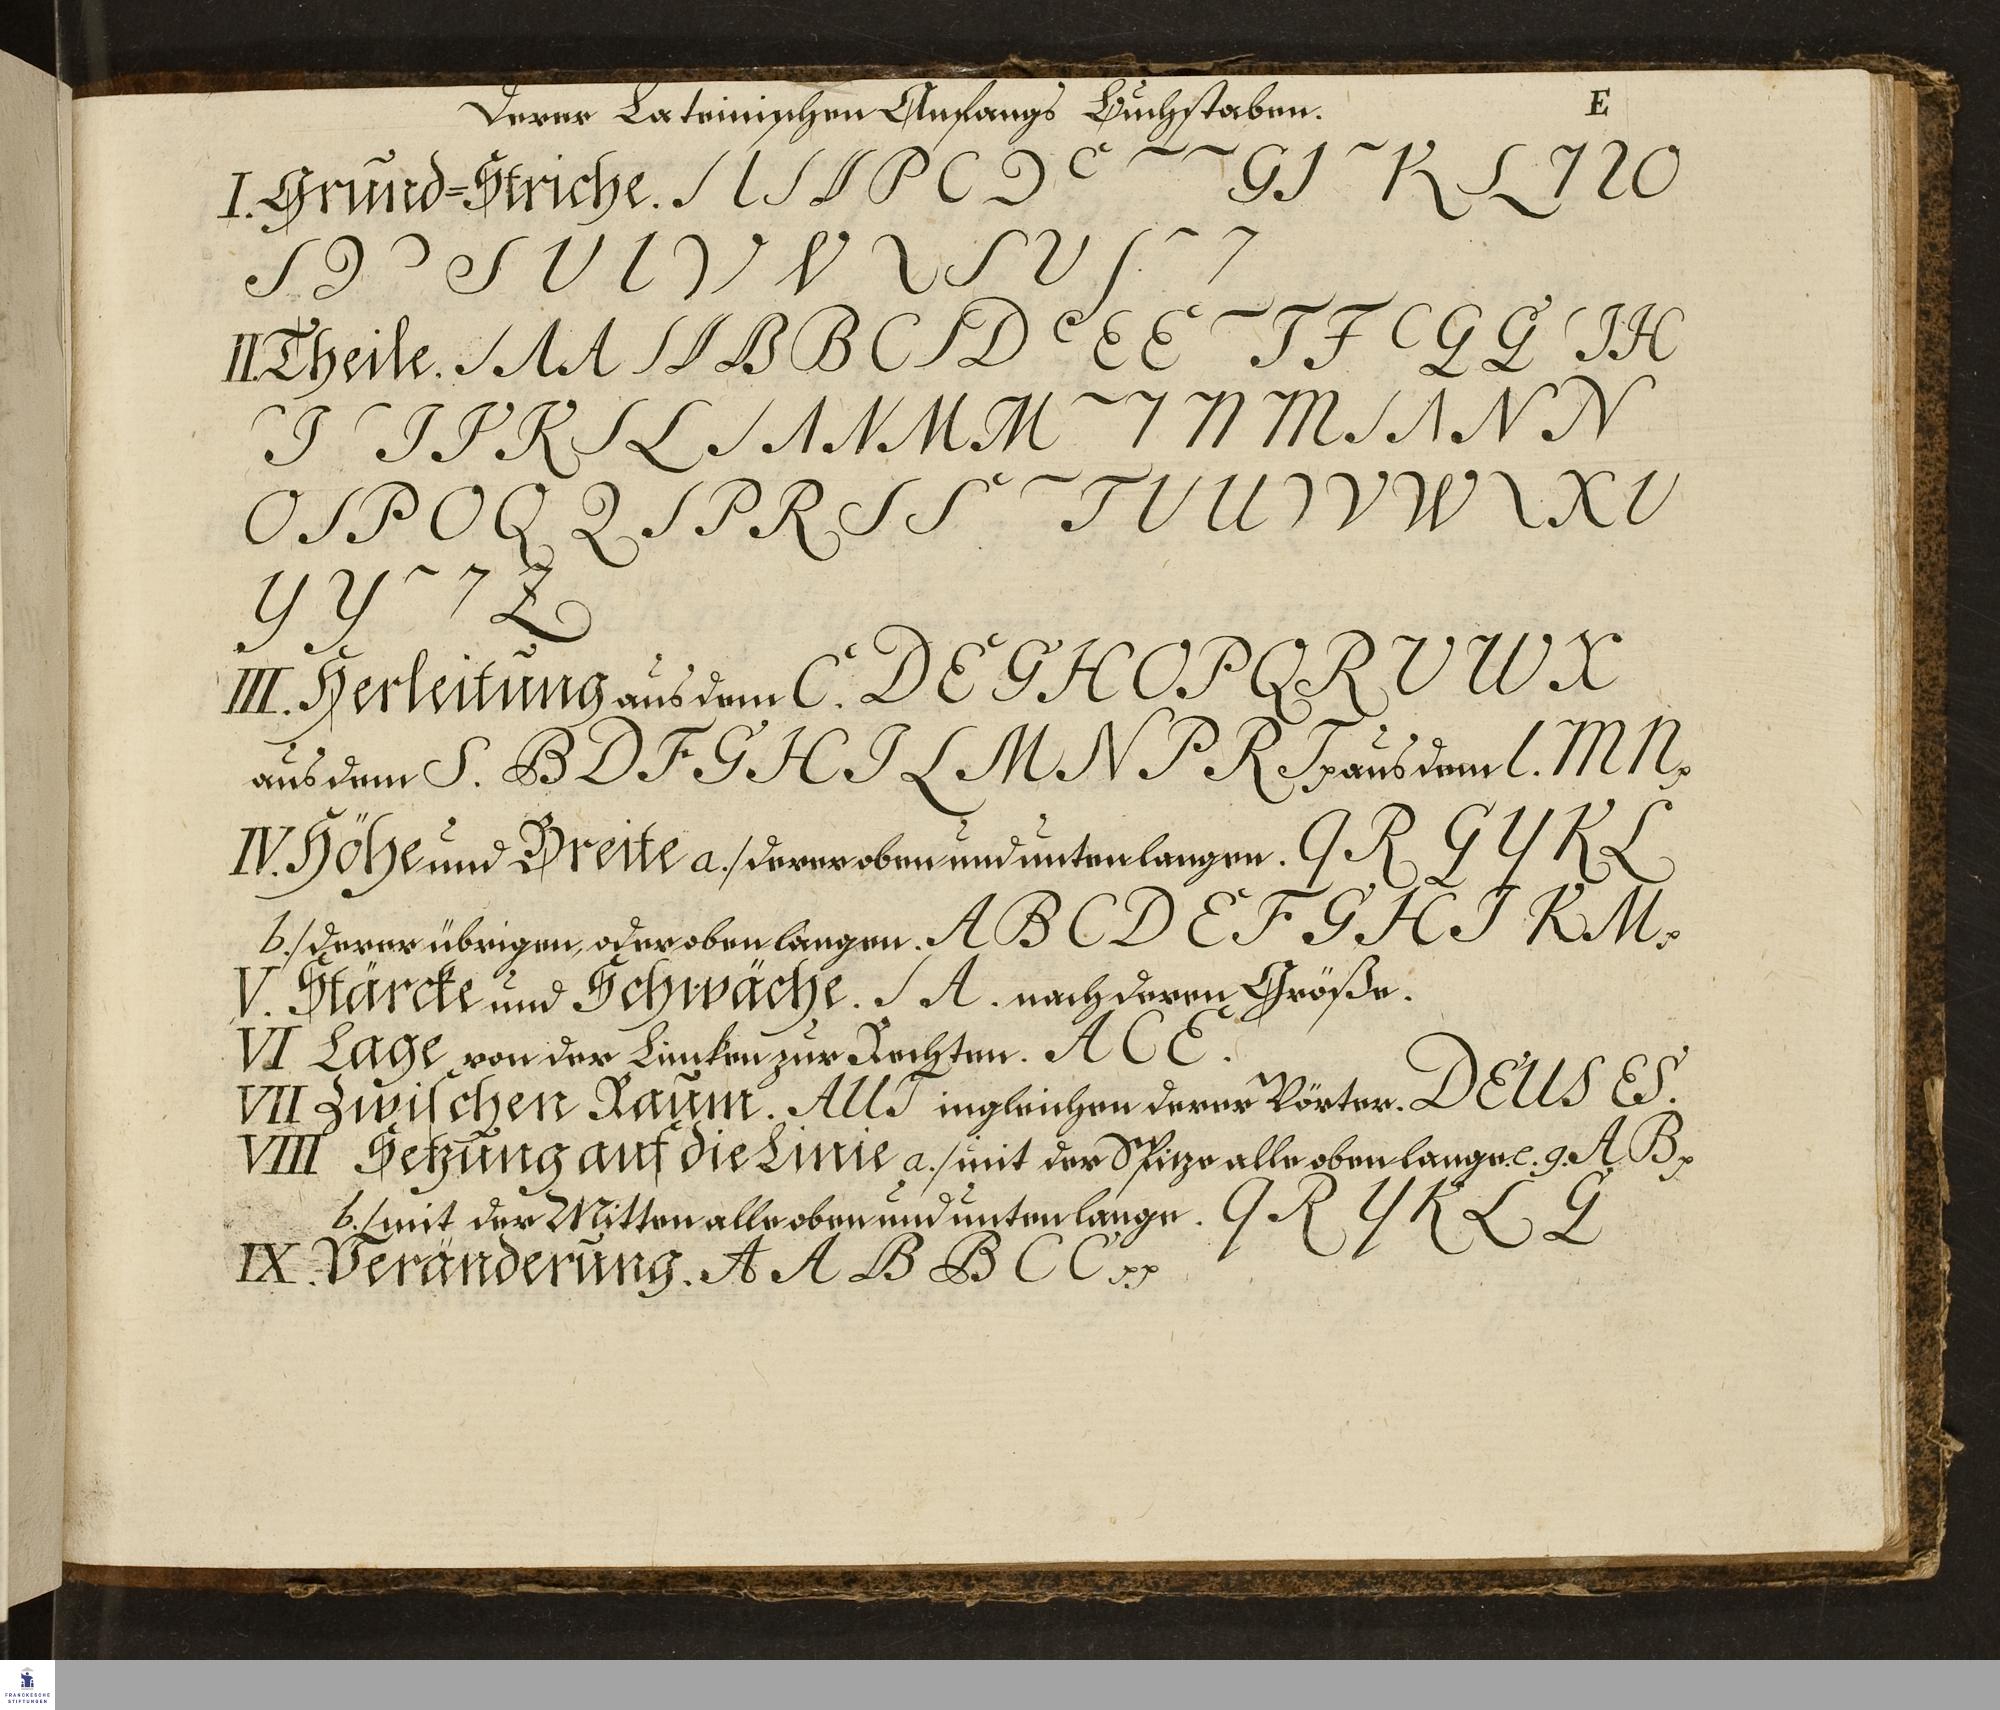 Derer Lateinischen Anfangs Buchstaben. E
I. Grund=Striche. P C G I K L O
S U V S U
II. Theile. A A B B C D E E T F C G G I H
I I P K L A N M M N M A N N
O P O Q Q P R S S T U U V W X U
Y Y Z
III. Herleitung aus dem C. D E G H O P Q R V W X
aus dem S. B D F G H I L M N P R T aus dem l. M N
IV. Höhe und Breite a./ derer oben und unten langen. Q R G Y K L
b./ derer übrigen, oder oben langen. A B C D E F G H I K M
V. Stärcke und Schwäche. A. nach deren Größe.
VI Lage von der Lincken zur Rechten. A C E.
VII Zwischen Raum. AUT ingleichen derer Wörter. DEUS ES.
VIII Setzung auf die Linie a./ mit der Spitze alle oben lange. e. g. A B
b./ mit der Mitten alle oben und unten lange. Q R Y K L G
IX. Veränderung. A A B B C C
FRANCKESCHE
STIFTUNGEN